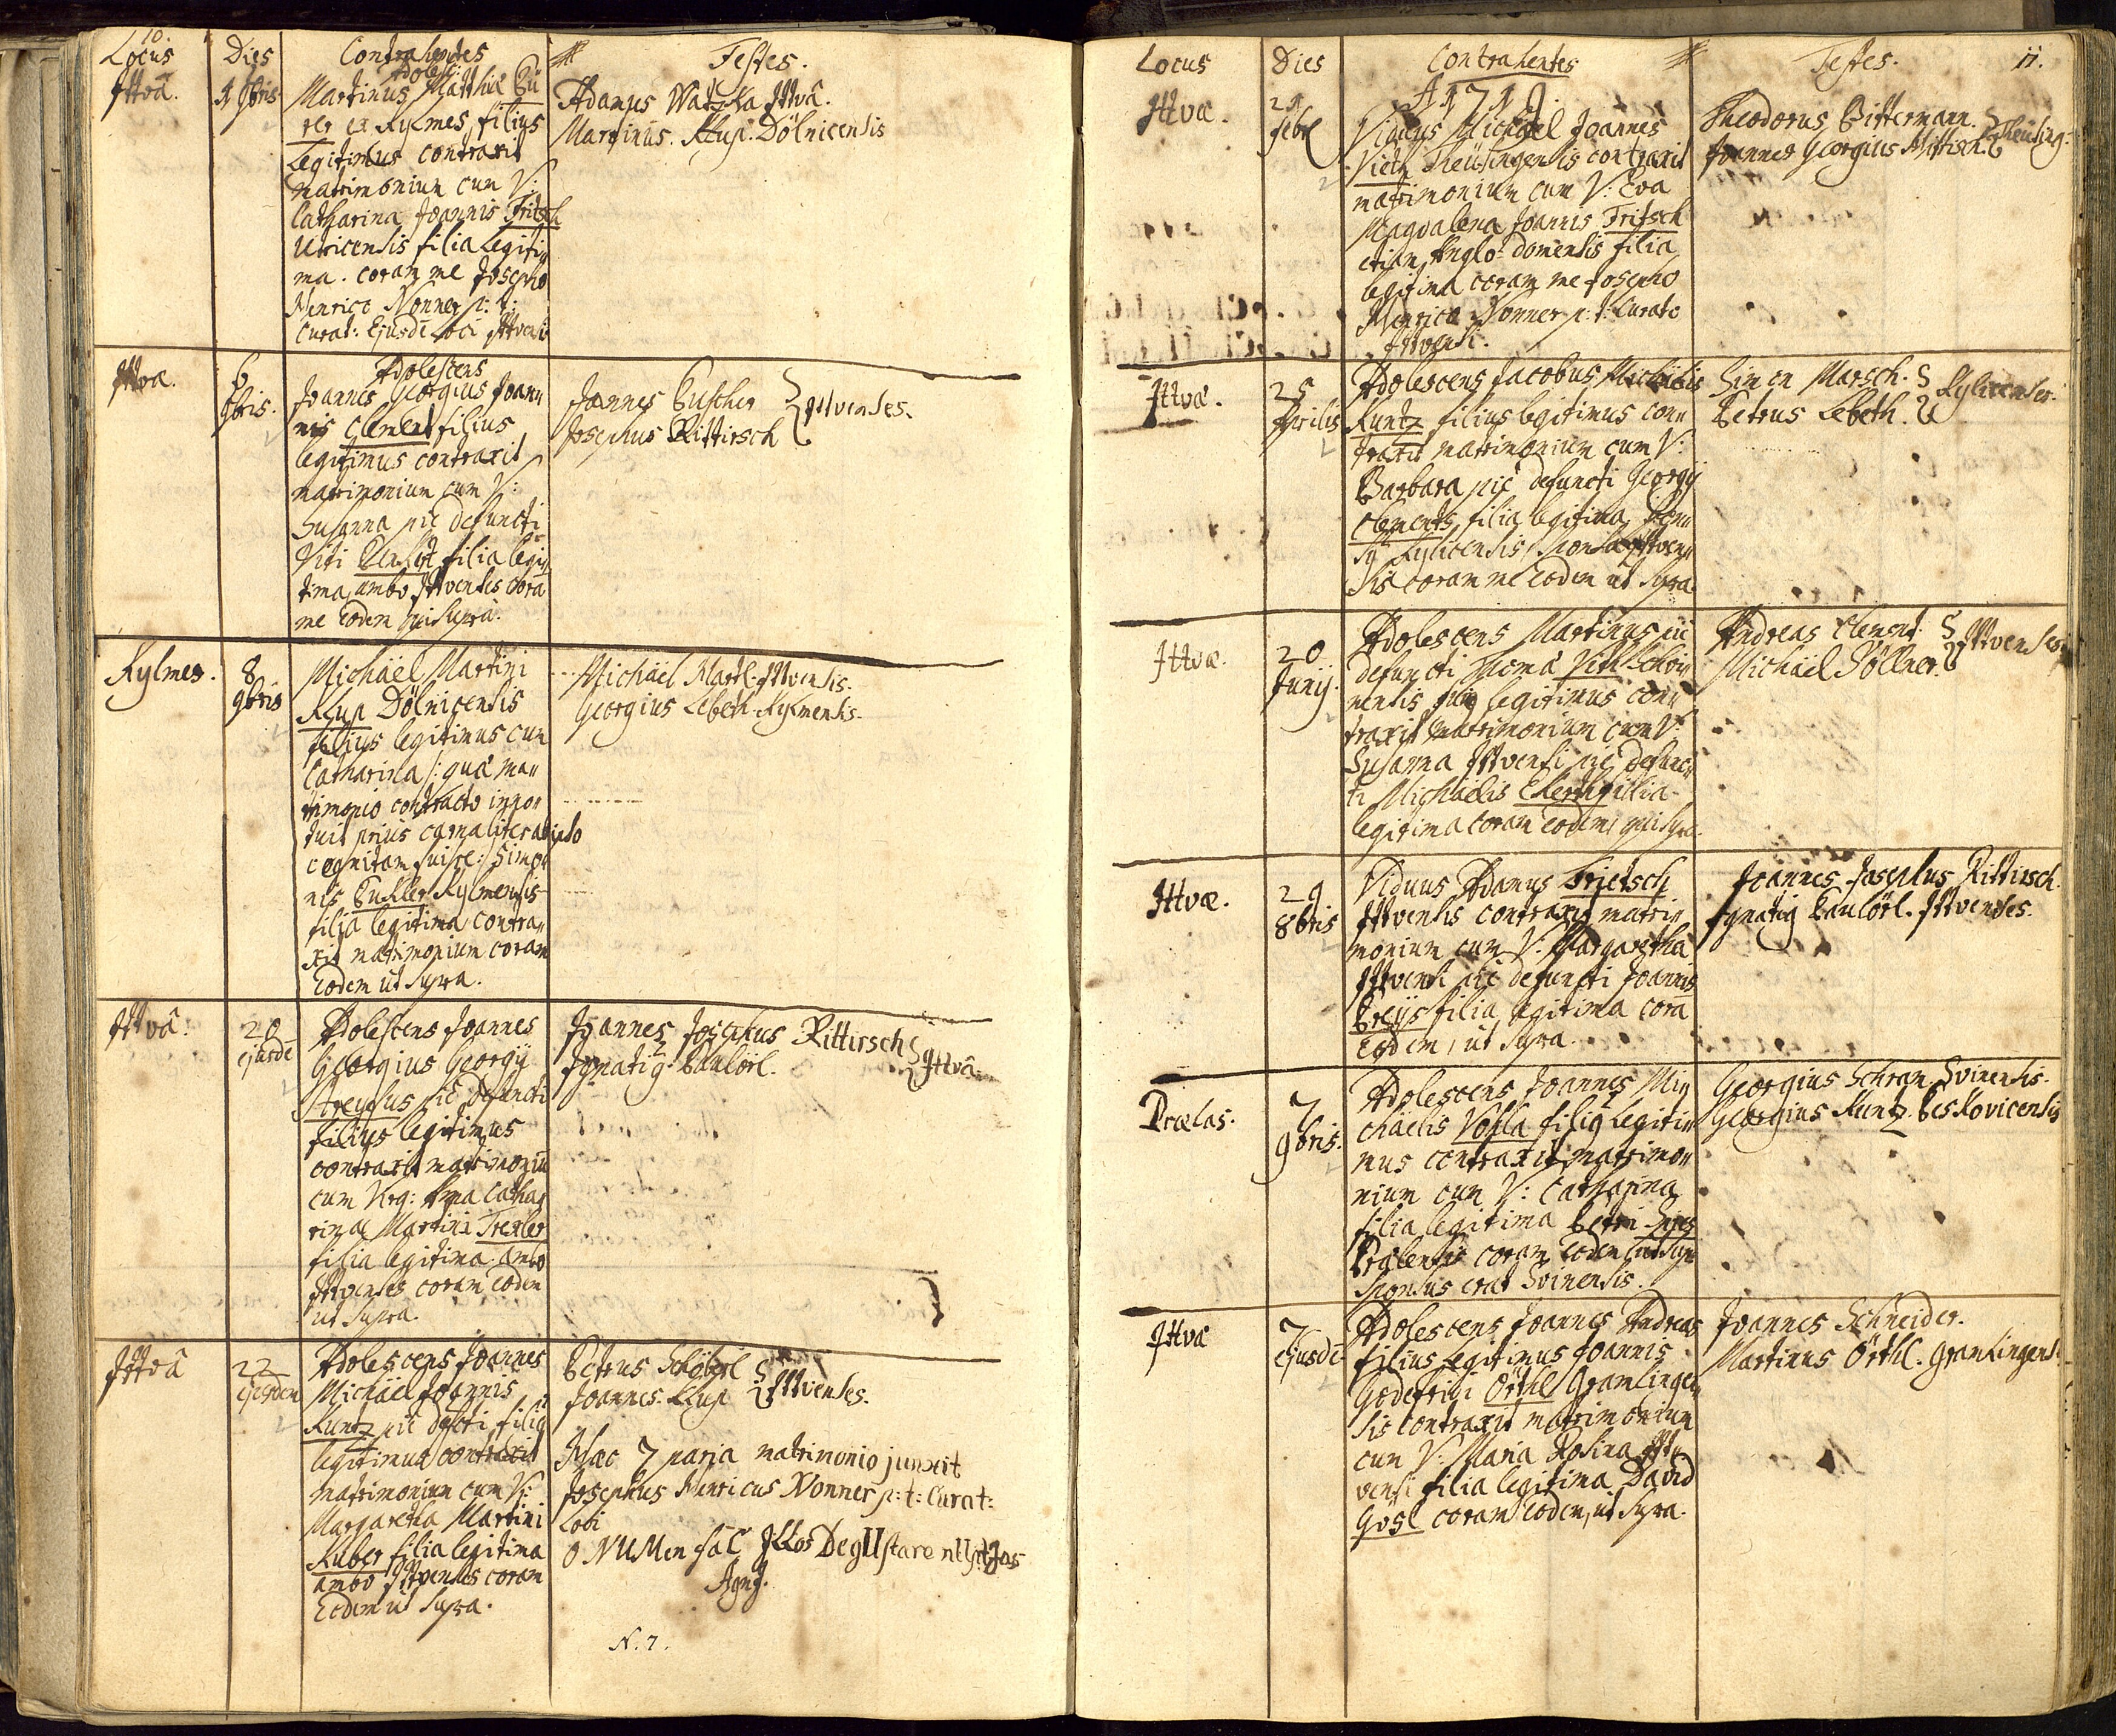 10.
Locus Dies Contrahentes Testes.
Ittvâ. 9bris Adolesc:
Martinus Matthiæ
ex Kylmes, filius
legitimus contraxit
matrimonium cum V:
Catharina Joannis Fritsch
Uticensis filia legiti„
ma. coram me Josepho
Henrico Nonner p: t:
Curat: Ejusdē loci Ittvensi
Adanus Watzka Ittvâ.
Martinus. Klup. Dölnicensis
Ittva. 6 9bris. Adolescens
Joannes Georgius Joan„
nis Clement filius
legitimus contraxit
matrimonium cum V:
Susanna pie defuncti
Viti filia legi„
tima, ambo Ittvenses corā
me Eodem qui supra.
Joannes Buscher
Josephus Rittirsch } Ittvenses.
Kylmes. 8 9bris Michaël Martini
Klup Dölnicensis
filius legitimus cum
Catharina /: quâ ma„
trimonio contracto inno„
tuit prius carnaliter ab ipso
cognitam fuisse :/ Simo„
nis Buhler Kylmensis
filia legitima contra„
xit matrimonium coram
Eodem ut supra.
Michaël Martl. Ittvensis.
Georgius Lebeth. Kylmensis.
Ittvâ. 20 ejusdē Adolescens Joannes
Georgius Georgij
pie defuncti
filius legitimus
contraxit matrimoniū
cum Virg: Anna Catha„
rina Martini Trexler
filia legitima. ambo
Ittvenses coram Eodem
ut supra.
Joannes Josephus Rittirsch
Ignatiq Baulörl. } Ittvâ.
Ittvâ 22 ejusdem Adolescens Joannes
Michaël Joannis
Kuntz pie defcti filiq
legitimus contraxit
matrimonium cum V:
Margaretha Martini
Kuber filia legitima
ambo Ittvenses coram
Eodem ut supra.
Petrus Schöberl
Joannes. Klup } Ittvenses.
Hac 7 paria matrimonio junxit
Josephus Henricus Nonner p: t: Curat:
Loci
O NUMen faC ILLos DegUstare
Agni.
N. 7.
11.
Locus Dies Contrahentes Testes.
A 1719.
Ittvæ. 21 febr Viduus Michael Joannes
Vieth Theüsingensis contraxit
matrimonium cum V: Eva
Magdalena Joannis Fritsch
etiam Anglo-domensis filia
legitima coram me Josepho
Henrico Nonner p: t: Curato
Ittvensi.
Theodorus Bittermann.
Joannes Georgius } Theüsing:
Ittvâ. 25 Aprilis Adolescens Jacobus Michaelis
Kuntz filius legitimus con„
traxit matrimonium cum V:
Barbara pie defuncti Georgij
Clements, filia legitima,
Kylicensis, Sponsa Ittven„
sis coram me Eodem ut supra.
Simon Marsch.
Petrus Lebeth. } Kylicenses.
Ittvæ. 20 Junij. Adolescens Martinus pie
defuncti Thoma Vith Schön„
nensis filiq legitimus con„
traxit matrimonium cum V:
Susanna Ittvensi pie defunc„
ti Michaelis filia
legitima coram eodem, qui supra.
Andreas Clement.
Michaël Söllner. } Ittvenses.
Ittvæ. 29 8bris Viduus Adamus Frietsch
Ittvensis contraxit matri„
monium cum V: Margaretha
Ittvensi pie defuncti Joannis
filia legitima corā
Eodem, ut supra.
Joannes Josephus Rittirsch.
Ignatiq Baulörl. Ittvenses.
Prælas. 7 9bris. Adolescens Joannes Mi„
chaelis Vohla filiq legiti„
mus contraxit matrimo„
nium cum V: Catharina
filia legitima Petri
Prælensis coram Eodem ut supr
Sponsus erat Svinensis.
Georgius Schran. Svinensis.
Georgius Kuntz. Beskovicensis
Ittvâ 7 ejusdē Adolescens Joannes Andreas
filius legitimus Joannis
Godefridi Örthl Gramlingen„
sis contraxit matrimonium
cum V: Maria Rosina Itt„
vensi filia legitima David
Gösl coram Eodem, ut supra.
Joannes Schneider.
Martinus Örthl. Gramlingens.